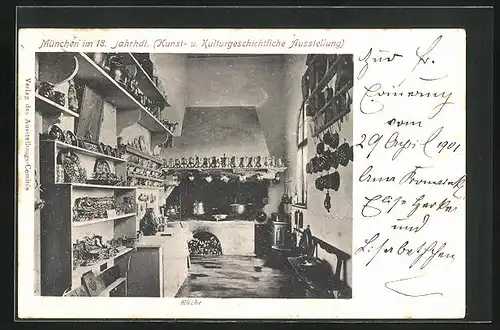 München im 18. Jahrhdt. (Kunst- u. Kulturgeschichtliche Ausstellung)
Verlag des Ausstellungs-Comités
Küche
Zur fr.
Erinnerung vom
29 April 1901
und
Lisabethchen